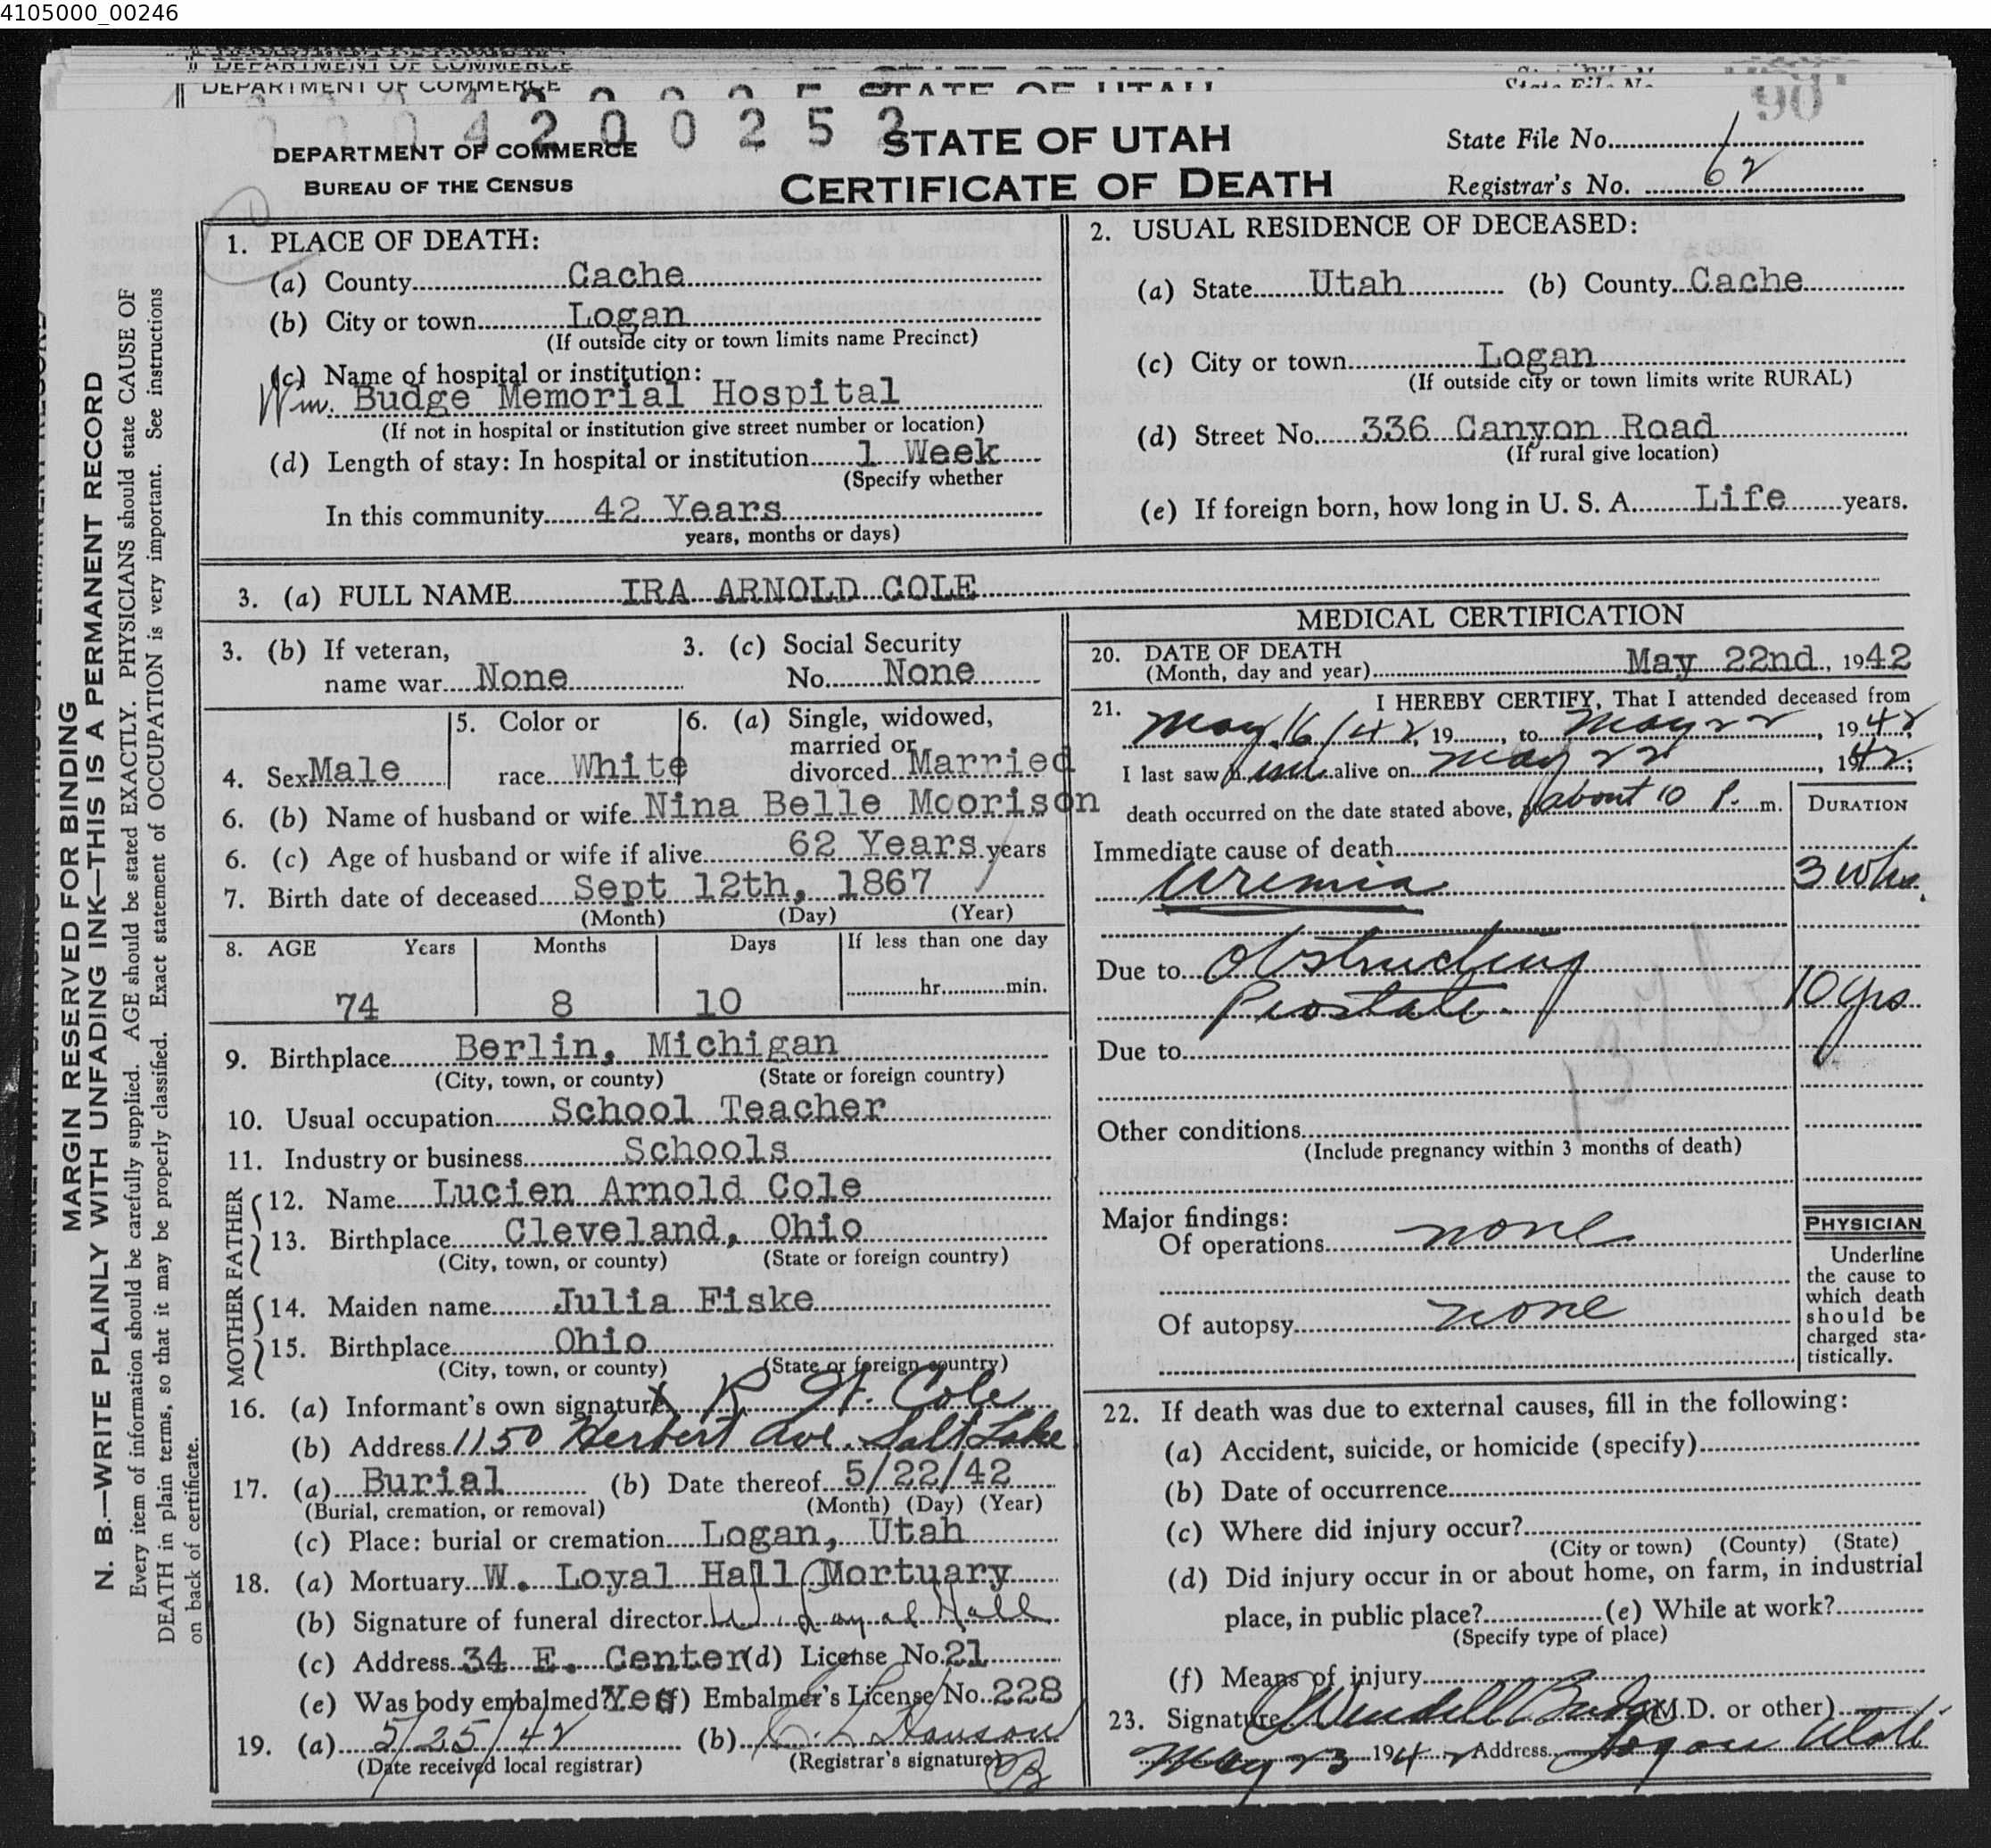 4105000_00246
DEPARTMENT OF COMMERCE
STATE OF UTAH
90
4 2 0 0 2 5 2
DEPARTMENT OF COMMERCE
BUREAU OF THE CENSUS
STATE OF UTAH
CERTIFICATE OF DEATH
State File No.
Registrar's No. 62
MARGIN RESERVED FOR BINDING
N. B.—WRITE PLAINLY WITH UNFADING INK—THIS IS A PERMANENT RECORD
Every item of information should be carefully supplied. AGE should be stated EXACTLY. PHYSICIANS should state CAUSE OF
DEATH in plain terms, so that it may be properly classified. Exact statement of OCCUPATION is very important. See instructions
on back of certificate.
1. PLACE OF DEATH:
(a) County Cache
(b) City or town Logan
(If outside city or town limits name Precinct)
(c) Name of hospital or institution:
Wm. Budge Memorial Hospital
(If not in hospital or institution give street number or location)
(d) Length of stay: In hospital or institution 1 Week
(Specify whether
In this community 42 Years
years, months or days)
2. USUAL RESIDENCE OF DECEASED:
(a) State Utah (b) County Cache
(c) City or town Logan
(If outside city or town limits write RURAL)
(d) Street No. 336 Canyon Road
(If rural give location)
(e) If foreign born, how long in U. S. A. Life years.
3. (a) FULL NAME IRA ARNOLD COLE
3. (b) If veteran,
name war None
3. (c) Social Security
No. None
4. Sex Male
5. Color or
race White
6. (a) Single, widowed,
married or
divorced Married
6. (b) Name of husband or wife Nina Belle Moorison
6. (c) Age of husband or wife if alive 62 Years years
7. Birth date of deceased Sept 12th, 1867
(Month) (Day) (Year)
8. AGE Years Months Days If less than one day
74 8 10 hr. min.
9. Birthplace Berlin, Michigan
(City, town, or county) (State or foreign country)
10. Usual occupation School Teacher
11. Industry or business Schools
FATHER
12. Name Lucien Arnold Cole
13. Birthplace Cleveland, Ohio
(City, town, or county) (State or foreign country)
MOTHER
14. Maiden name Julia Fiske
15. Birthplace Ohio
(City, town, or county) (State or foreign country)
16. (a) Informant's own signature X R. W. Cole
(b) Address 1150 Herbert Ave. Salt Lake
17. (a) Burial (b) Date thereof 5/22/42
(Burial, cremation, or removal) (Month) (Day) (Year)
(c) Place: burial or cremation Logan, Utah
18. (a) Mortuary W. Loyal Hall Mortuary
(b) Signature of funeral director W. Loyal Hall
(c) Address 34 E. Center (d) License No. 21
(e) Was body embalmed? Yes (f) Embalmer's License No. 228
19. (a) 5/25/42 (b) Hanson
(Date received local registrar) (Registrar's signature)
MEDICAL CERTIFICATION
20. DATE OF DEATH
(Month, day and year) May 22nd, 1942
21. I HEREBY CERTIFY, That I attended deceased from
May 16/42, 19 , to May 22, 1942;
I last saw him alive on May 22, 1942;
death occurred on the date stated above, at about 10 P. m.
DURATION
Immediate cause of death
Uremia 3 wks.
Due to Obstructing
Prostate. 10 yrs
Due to
Other conditions
(Include pregnancy within 3 months of death)
Major findings:
Of operations none
Of autopsy none
PHYSICIAN
Underline
the cause to
which death
should be
charged sta-
tistically.
22. If death was due to external causes, fill in the following:
(a) Accident, suicide, or homicide (specify)
(b) Date of occurrence
(c) Where did injury occur?
(City or town) (County) (State)
(d) Did injury occur in or about home, on farm, in industrial
place, in public place? (e) While at work?
(Specify type of place)
(f) Means of injury
23. Signature Wendell Budge (M.D. or other)
May 23 1942 Address Logan Utah